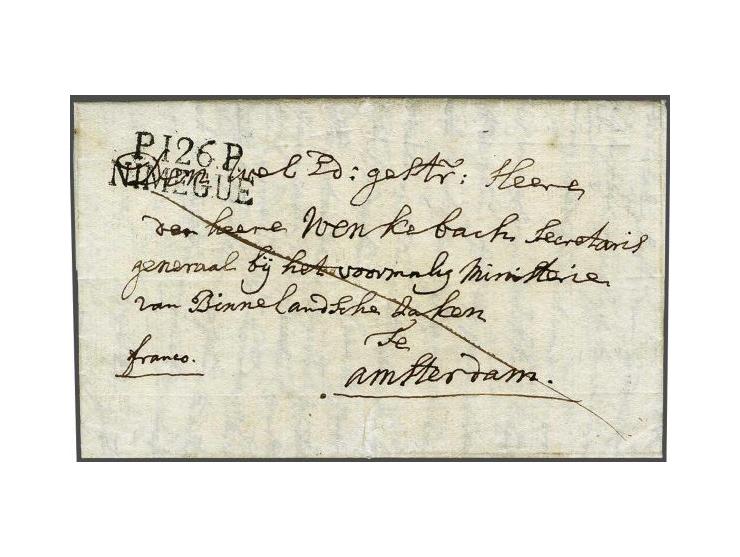 P.126.P.
NIMEGUE
Den Wel Ed: gestr: Heere
den heere Wenkebach Secretaris
generaal bij het voormalig Ministerie
van Binnelandsche Zaken
Te
franco.
amsterdam.